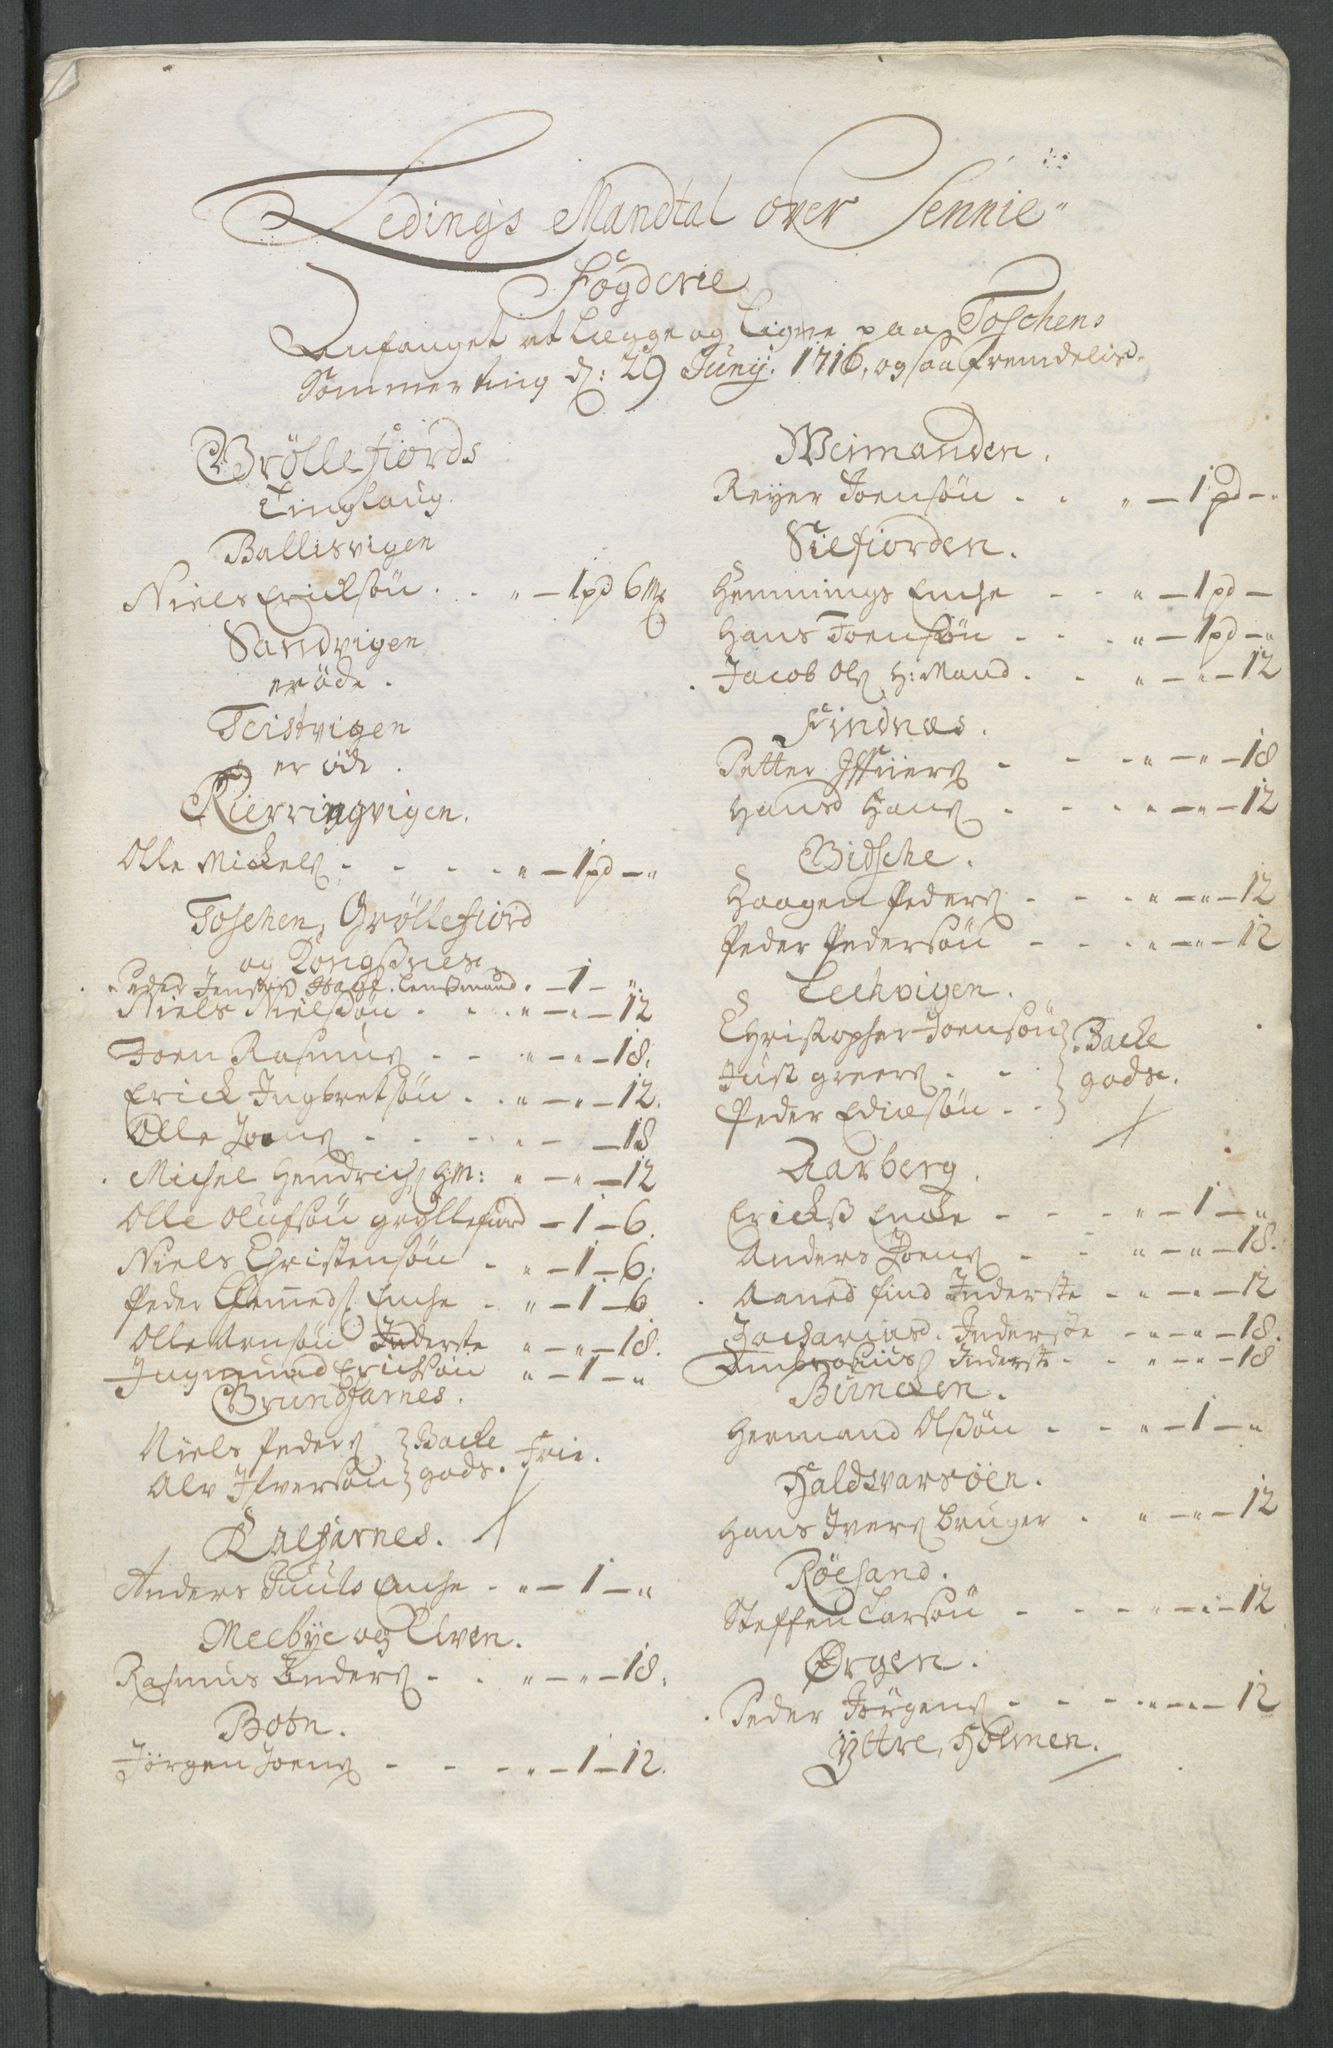 Ledings Mandtal over Sennie
Fögderie
Anfanget at Legge og Ligne paa Toschens
Sommerting d: 29 Junij. 1716, og saa fremdelis.
Gröllefiords
Tinglaug.
Ballisvigen
Niels Ericksön . . " — 1 pd 6 Mk
Sandvigen
er öde.
Teistvigen
er öde.
Kierringvigen.
Olle Mickels - - - " — 1 pd — "
Toschen, Gröllefiord
og Kongsnes.
Peder Jensen Hage. Lensmand . — 1 — "
Niels Nielsön . . . " — " — 12
Joen Rasmus - - " — " — 18.
Erick Ingbretsön . . " — " — 12.
Olle Joens - - - " — — 18
Michel Hendrichs H:M: " — " — 12
Olle Olufsön gryllefiord — 1 — 6.
Niels Christensön . " — 1 — 6.
Peder Enche . " — 1 — 6
Olle Arnsön Inderste " — " — 18.
Ingmund Ericksön " — 1 — "
Grundfarnes.
Niels Peders } Backe
Alv Iffversön } gods. Frie.
Kalfarnes.
Anders Puuls Enche - " — 1 — "
Meebye og Elven.
Rasmus Anders - . " — " — 18.
Botn.
Jörgen Joens - - - " — 1 — 12.
Weimanden.
Reyer Joensön . . " — 1 pd — "
Siefiorden.
Hemmings Enche - - " — 1 pd —
Hans Joensön . . . " — 1 pd — "
Jacob Ols H: Mand . . " — " — 12
Findnæs.
Petter Iffvers - - - " — " — 18
Hans Hans - - - " — " — 12
Gidsche.
Haagen Peders - - - " — " — 12
Peder Pedersön - - - " — " — 12
Lechvigen.
Christopher Joensön } Backe
Just greers - - } gods.
Peder Edissön - - }
Aarberg.
Ericks Encke - - - " — 1 — "
Anders Joens - - " — " — 18.
Aaned find Inderste - " — " — 12
Zacharias. Inderste - " — " — 18.
Ambrosius Inderste - - " — " — 18
Büncken.
Hermand Olssön - - " — 1 — "
Haldsvarsöen.
Hans Ivers bruger . " — " — 12
Röesand.
Steffen Larsön - - - " — " — 12
Ørgen.
Peder Jörgens - - - " — " — 12
Yttre, Holmen.